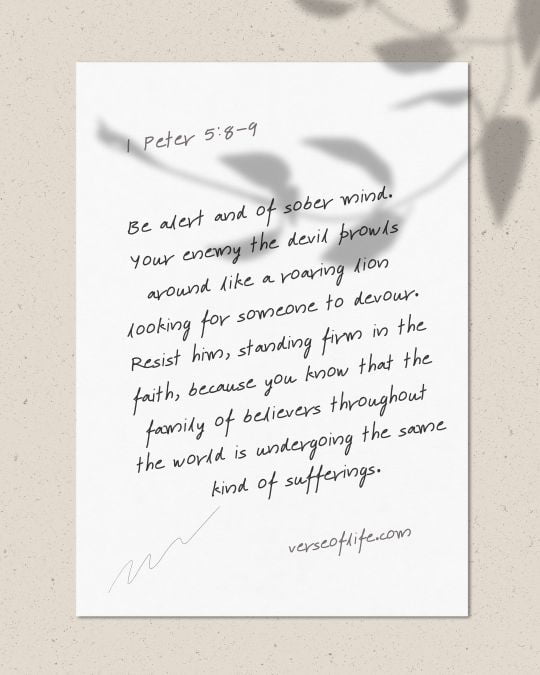 1 Peter 5:8-9
Be alert and of sober mind.
Your enemy the devil prowls
around like a roaring lion
looking for someone to devour.
Resist him, standing firm in the
faith, because you know that the
family of believers throughout
the world is undergoing the same
kind of sufferings.
verseoflife.com